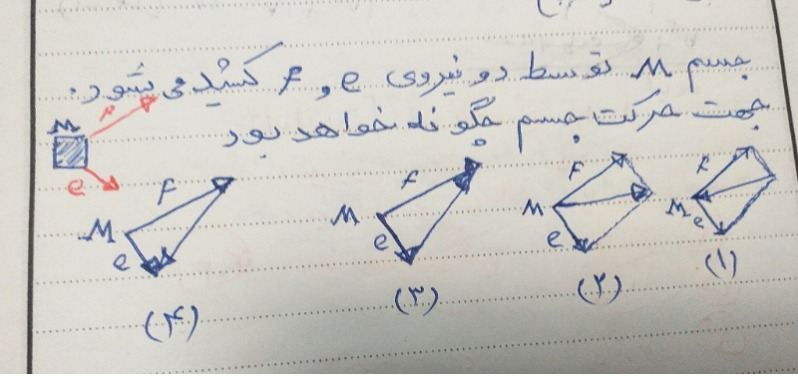 جسم M توسط دو نیروی e و F کشیده می شود.
جهت حرکت جسم چگونه خواهد بود
M
F
e
F
M
e
(۱)
F
M
e
(۲)
F
M
e
(۳)
F
M
e
(۴)